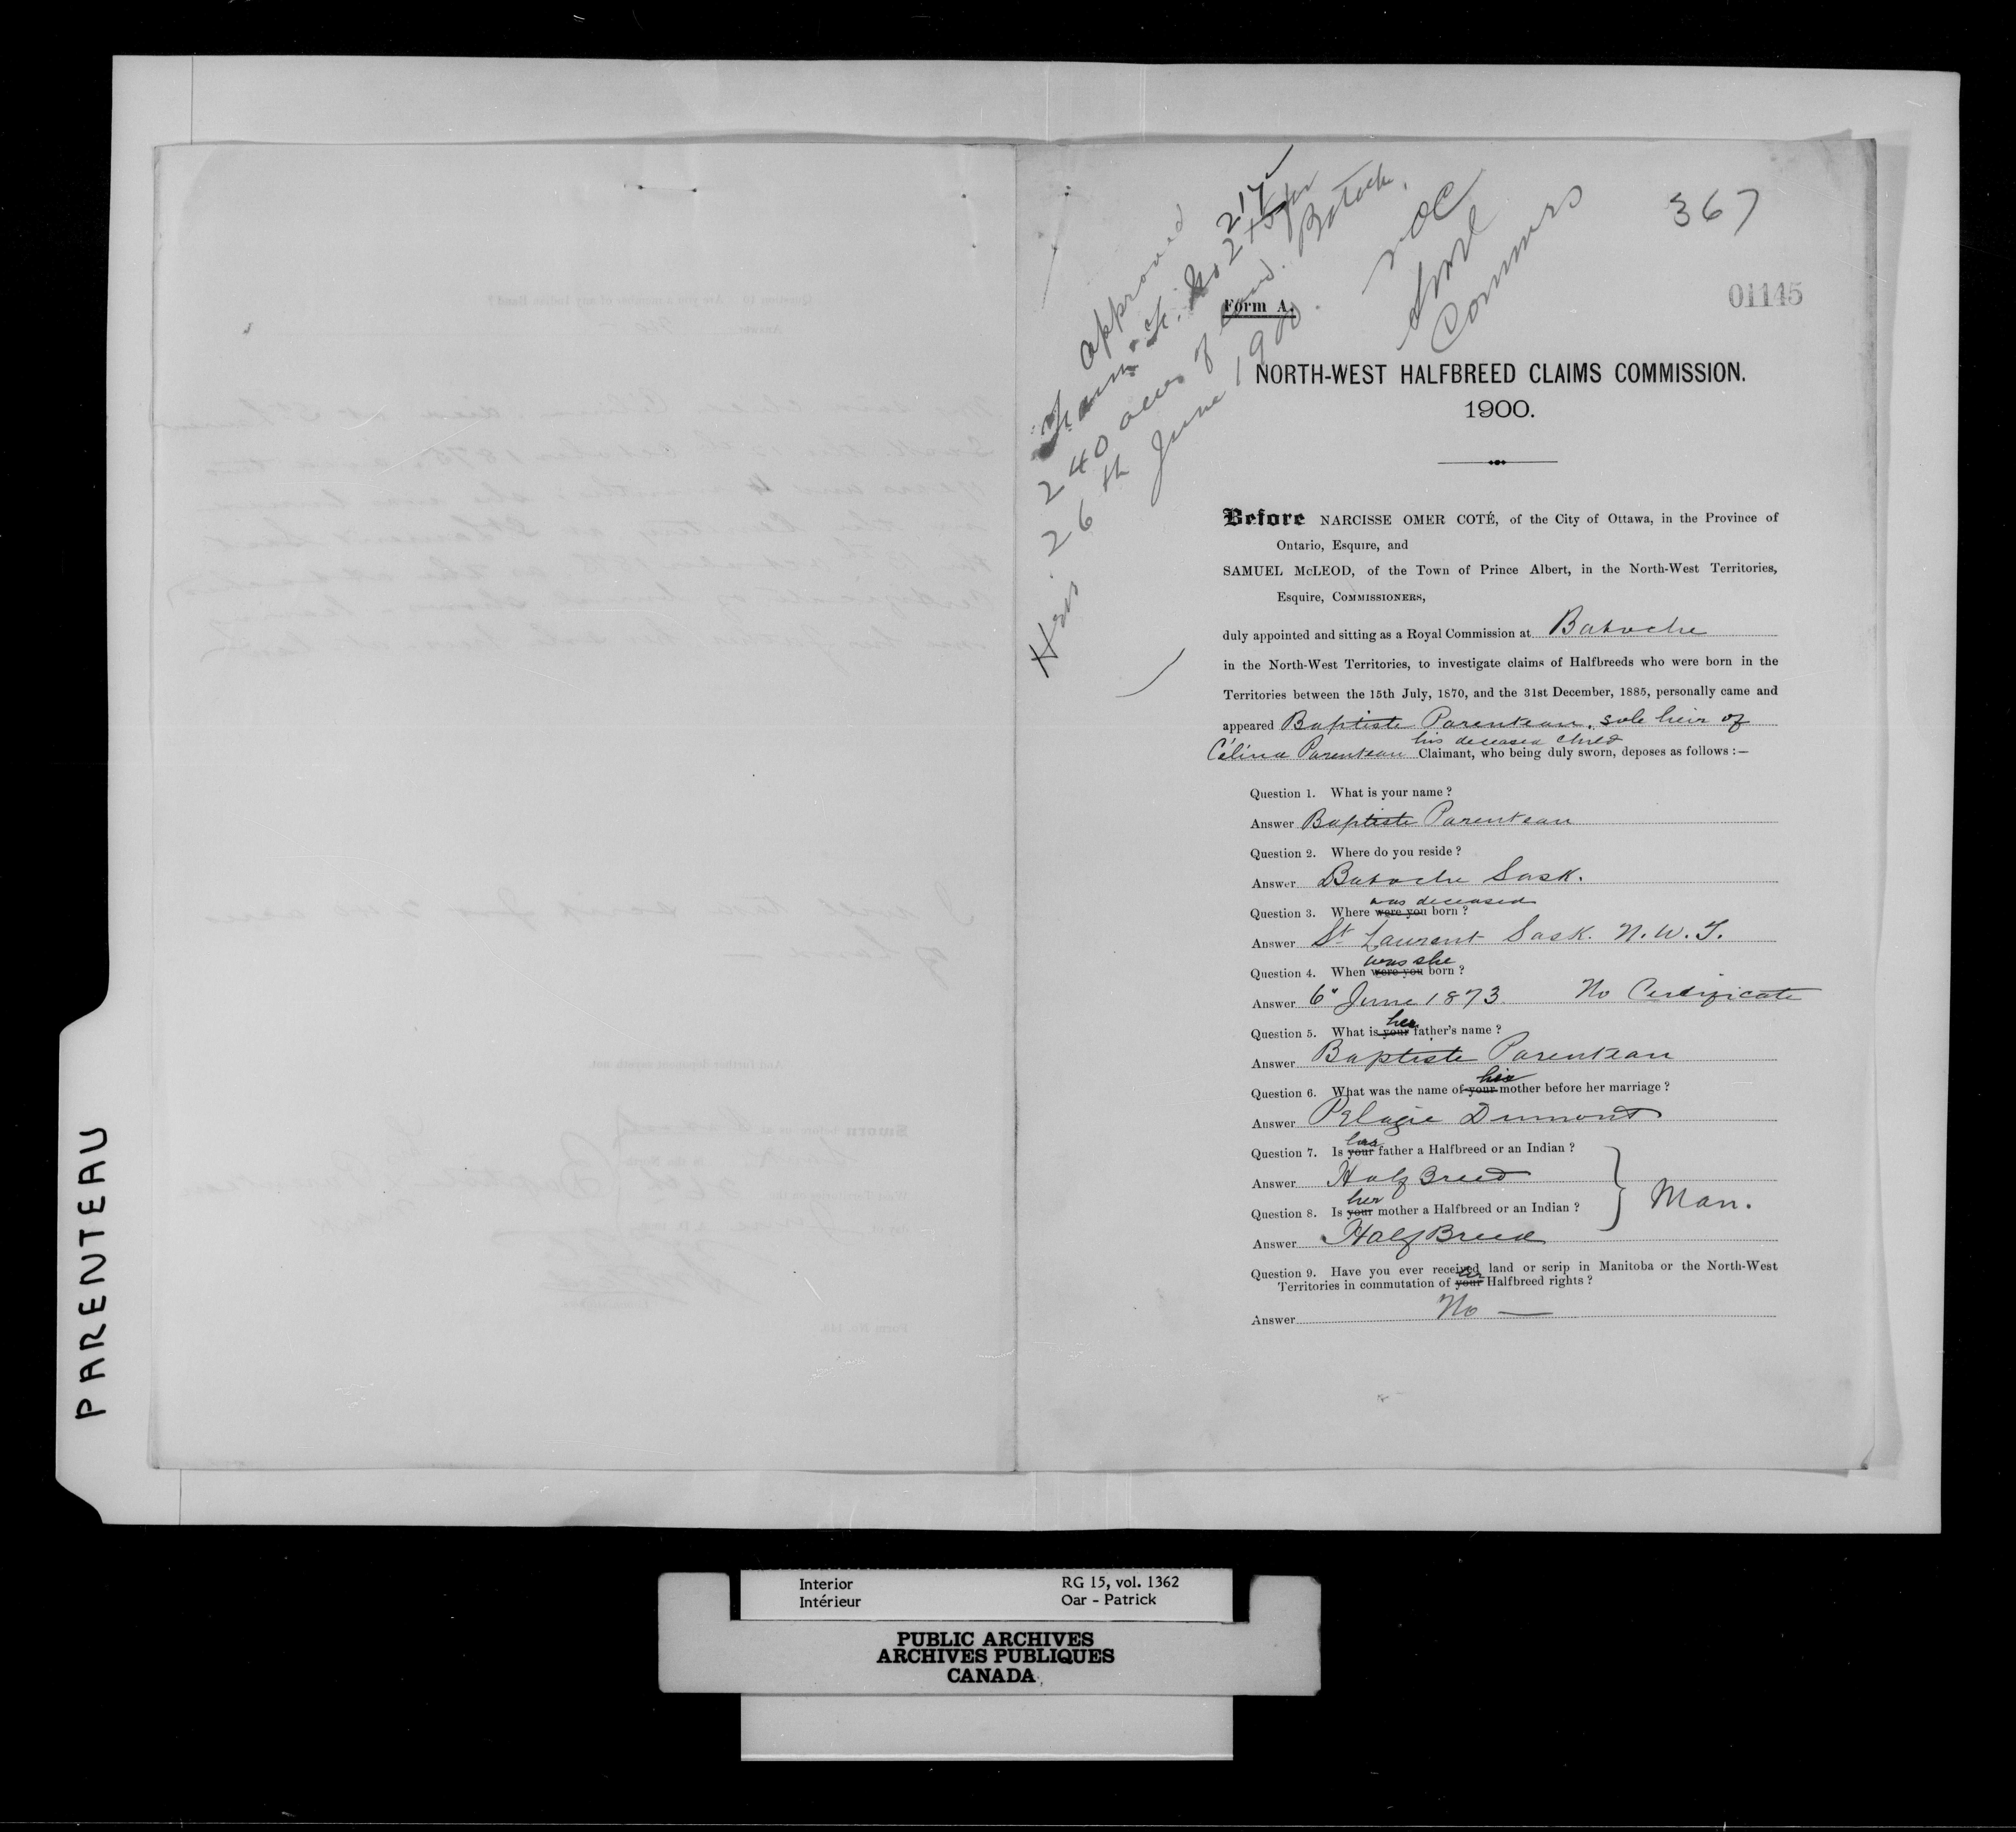 PARENTEAU
367
01145
approved
217
No 245 for
240 acres of land. Batoche
26th June 1900.
NOC
SML
Commrs
Form A.
NORTH-WEST HALFBREED CLAIMS COMMISSION.
1900.
Before NARCISSE OMER COTÉ, of the City of Ottawa, in the Province of
Ontario, Esquire, and
SAMUEL McLEOD, of the Town of Prince Albert, in the North-West Territories,
Esquire, COMMISSIONERS,
duly appointed and sitting as a Royal Commission at Batoche
in the North-West Territories, to investigate claims of Halfbreeds who were born in the
Territories between the 15th July, 1870, and the 31st December, 1885, personally came and
appeared Baptiste Parenteau, sole heir of
his deceased child
Célina Parenteau Claimant, who being duly sworn, deposes as follows :—
Question 1. What is your name ?
Answer Baptiste Parenteau
Question 2. Where do you reside ?
Answer Batoche Sask.
was deceased
Question 3. Where were you born ?
Answer St Laurent Sask. N.W.T.
was she
Question 4. When were you born ?
Answer 6" June 1873. No Certificate
her
Question 5. What is your father's name ?
Answer Baptiste Parenteau
her
Question 6. What was the name of your mother before her marriage ?
Answer Pelagie Dumont
her
Question 7. Is your father a Halfbreed or an Indian ?
Answer Half Breed
her
Question 8. Is your mother a Halfbreed or an Indian ?
Man.
Answer Half Breed
Question 9. Have you ever received land or scrip in Manitoba or the North-West
her
Territories in commutation of your Halfbreed rights ?
Answer No —
Interior RG 15, vol. 1362
Intérieur Oar - Patrick
PUBLIC ARCHIVES
ARCHIVES PUBLIQUES
CANADA